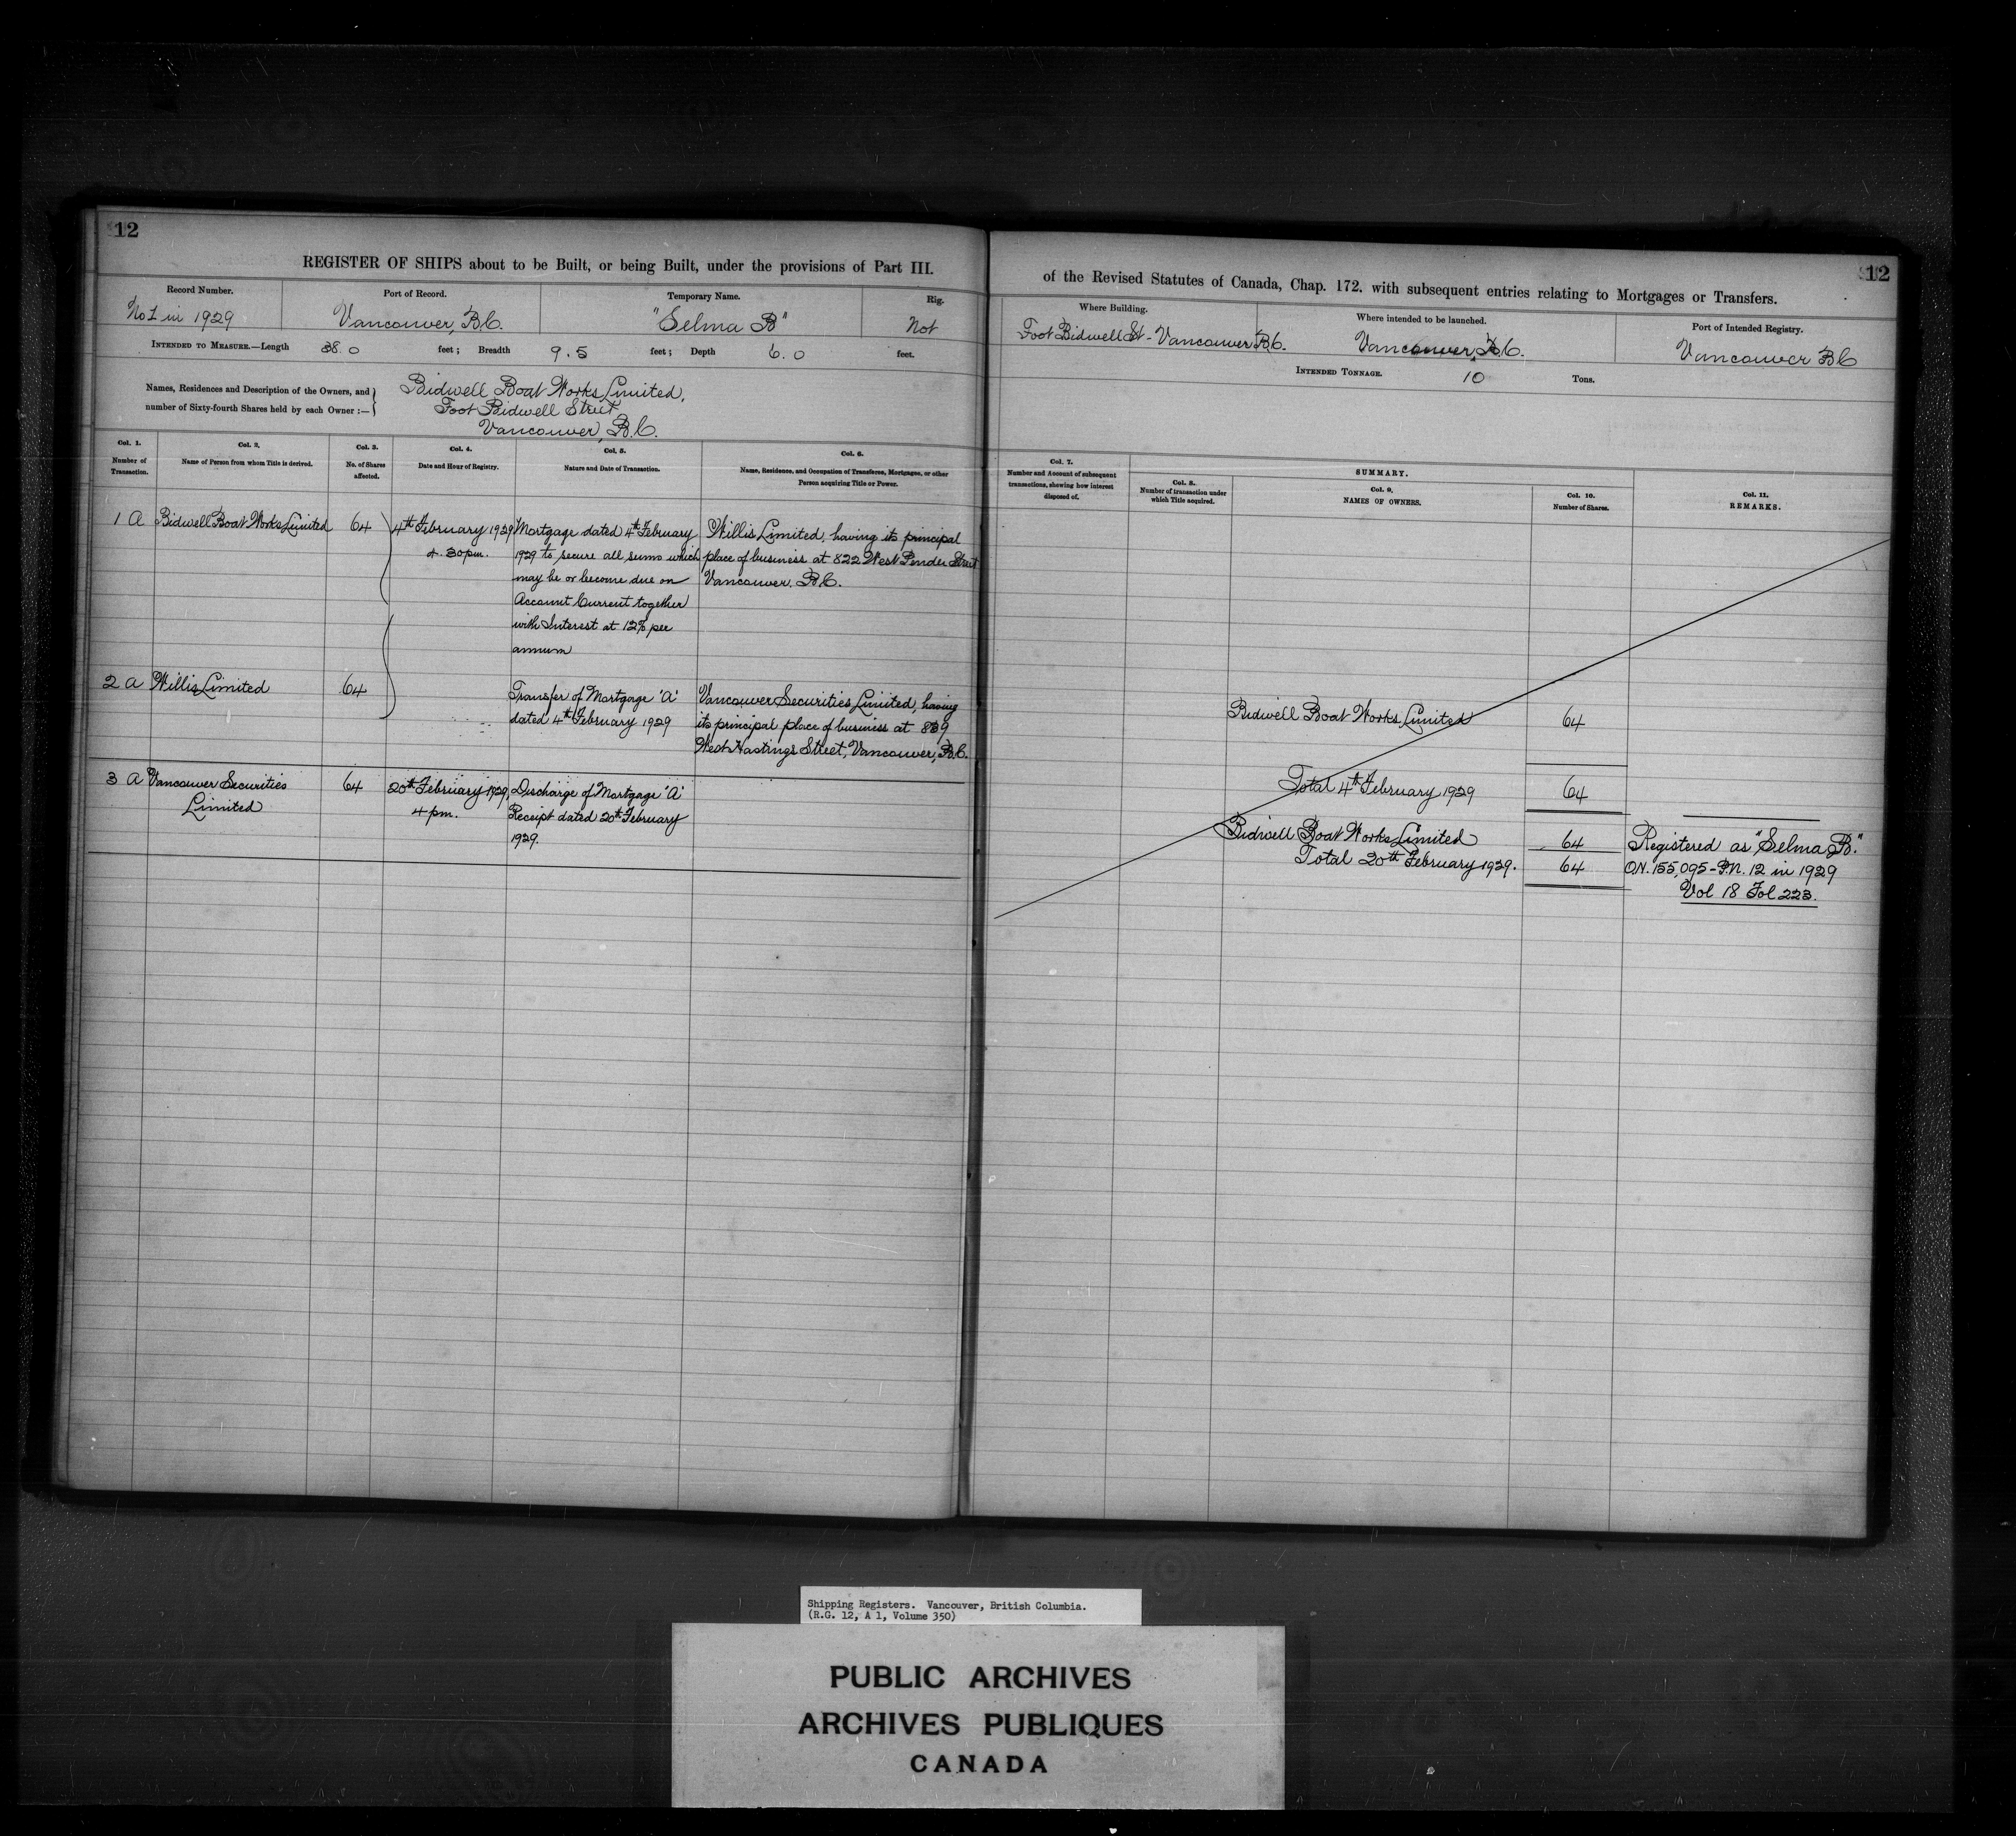 12
REGISTER OF SHIPS about to be Built, or being Built, under the provisions of Part III.
Record Number.
Port of Record.
Temporary Name.
Rig.
No 1 in 1929
Vancouver, B.C.
"Selma B"
Not
INTENDED TO MEASURE.—Length 38.0 feet; Breadth 9.5 feet; Depth 6.0 feet.
Names, Residences and Description of the Owners, and
number of Sixty-fourth Shares held by each Owner :—
Bidwell Boat Works Limited,
Foot Bidwell Street
Vancouver, B.C.
Col. 1.
Number of
Transaction.
Col. 2.
Name of Person from whom Title is derived.
Col. 3.
No. of Shares
affected.
Col. 4.
Date and Hour of Registry.
Col. 5.
Nature and Date of Transaction.
Col. 6.
Name, Residence, and Occupation of Transferee, Mortgagee, or other
Person acquiring Title or Power.
1 A
Bidwell Boat Works Limited
64
4th February 1929
4.30 pm.
Mortgage dated 4th February
1929 to secure all sums which
may be or become due on
Account Current together
with Interest at 12% per
annum
Willis Limited, having its principal
place of business at 822 West Pender Street
Vancouver, B.C.
2 A
Willis Limited
64
Transfer of Mortgage 'A'
dated 4th February 1929
Vancouver Securities Limited, having
its principal place of business at 839
West Hastings Street, Vancouver, B.C.
3 A
Vancouver Securities
Limited
64
20th February 1929,
4 pm.
Discharge of Mortgage 'A'
Receipt dated 20th February
1929.
12
of the Revised Statutes of Canada, Chap. 172. with subsequent entries relating to Mortgages or Transfers.
Where Building.
Where intended to be launched.
Port of Intended Registry.
Foot Bidwell St - Vancouver B.C.
Vancouver, B.C.
Vancouver BC
INTENDED TONNAGE. 10 Tons.
Col. 7.
Number and Account of subsequent
transactions, shewing how interest
disposed of.
SUMMARY.
Col. 8.
Number of transaction under
which Title acquired.
Col. 9.
NAMES OF OWNERS.
Col. 10.
Number of Shares.
Col. 11.
REMARKS.
Bidwell Boat Works Limited
64
Total 4th February 1929
64
Bidwell Boat Works Limited
64
Total 20th February 1929.
64
Registered as "Selma B."
O.N. 155,095 - P.N. 12 in 1929
Vol 18 Fol 223.
Shipping Registers. Vancouver, British Columbia.
(R.G. 12, A 1, Volume 350)
PUBLIC ARCHIVES
ARCHIVES PUBLIQUES
CANADA